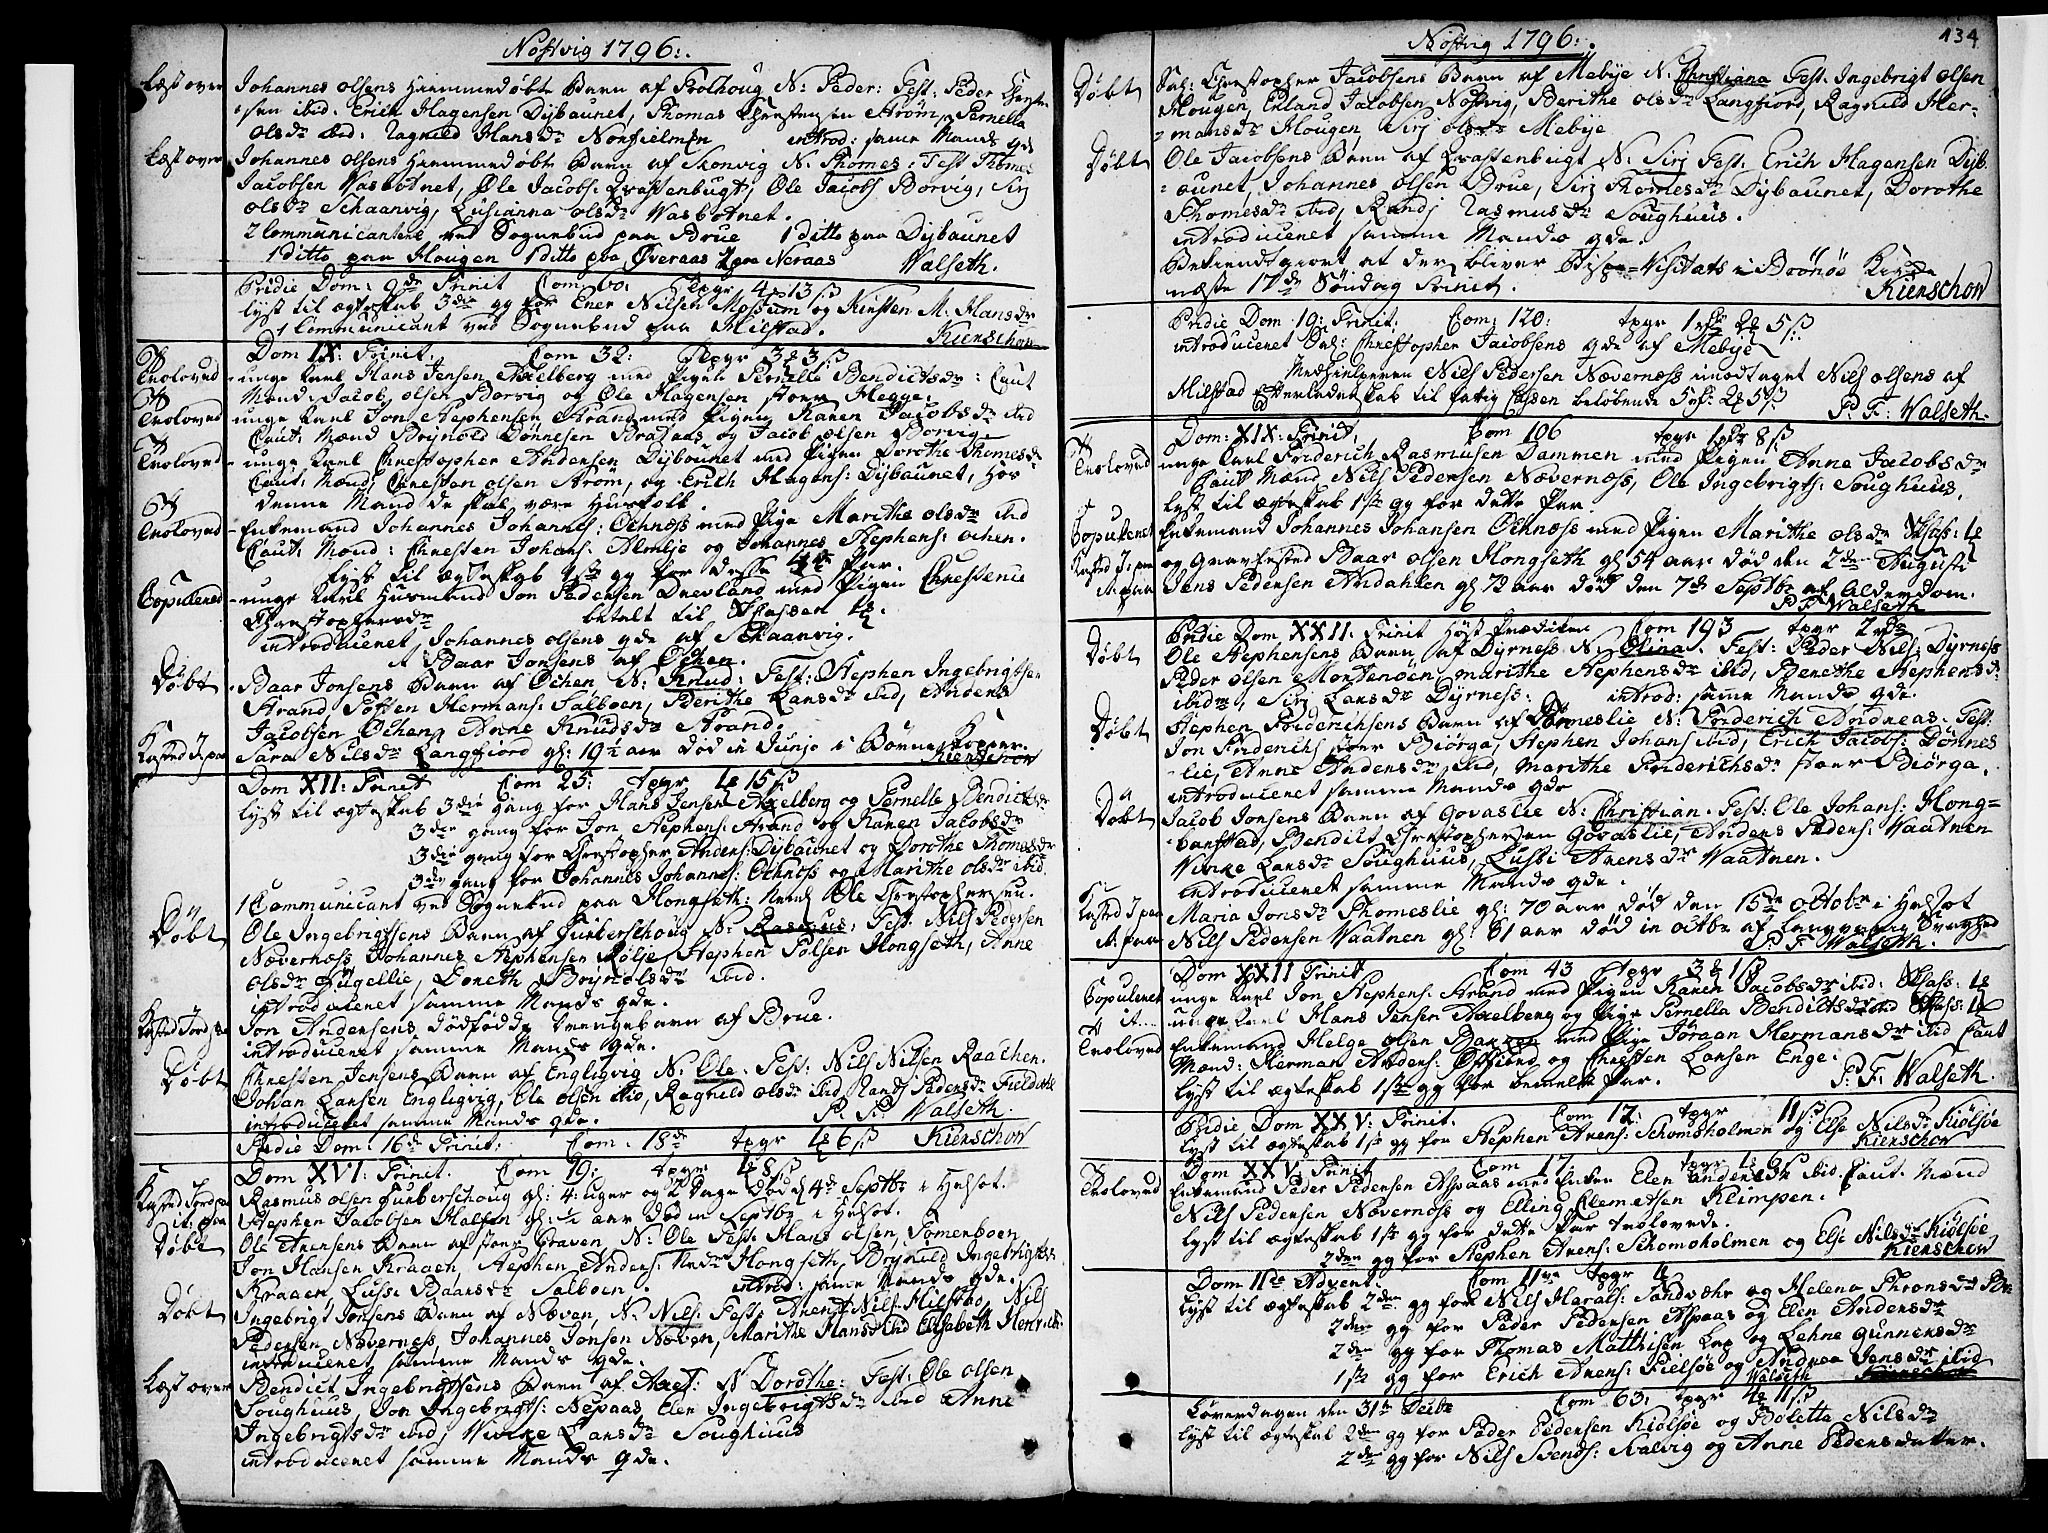 Nøstvig 1796:
Læst over Johannes olsens hiemmedøbte Barn af Trolhoug N: Peder: Test: Peder
sen ibid. Erich Hagensen Dybaunet, Thomas Christensen Strøm, Pernella
ols dr ibid: Ragnild Hans dr Norfielmen introd: samme Mands qde
Læst over Johannes olsens hiemmedøbte Barn af Skonvig N. Thomes: Test Thomes
Jacobsen Vasbotnet, Ole Jacobs: Qvastenbugt, Ole Jacobs Borvig, Sirj
ols dr Schaanvig, Lusianna ols dr Vasbotnet.
2 Communicantere ved Sognebud paa Brue 1 ditto paa Dybaunet
1 ditto paa Hougen 1 ditto paa Øveraas 1 paa Neraas Walseth.
Pridie Dom: 9de Trinit Com 60: Tpgr 4 13 ß
lyst til ægteskab 3die gg for Ener Nilsen Mossum og Kirsten M. Hans dr
1 Communicant ved Sognebud paa Hilstad. Kierschow
Dom IX: Trinit. Com 32: Tpgr 3 3 ß
Troloved unge Karl Hans Jensen Axelberg med Pigen Pernelle Bendicts dr: Caut
Mænd: Jacob olsen Borvig og Ole Hagensen store Hegge.
Troloved unge Karl Jon Stephensen Strand med Pigen Karen Jacobs dr ibid
Caut: Mænd Brynold Dønnesen Brataas og Jacob olsen Borvig
Troloved unge Karl Christopher Andersen Dybaunet med Pigen Dorothe Thomes dr
Caut: Mænd; Christen olsen Strøm, og Erich Hagens: Dybaunet, hos
denne Mand de skal være Husfolk.
Troloved Enkemand Johannes Johannes: Ochnæss med Pige Marithe ols dr ibid
Caut: Mænd: Christen Johans: Almlie og Johannes Stephens: Ochen.
lyst til ægteskab 1ste gg for desse 4 Par.
Copulered unge Karl Husmand Jon Pedersen Drevland med Pigen Christense
Christophers dr betalt til Chassen
introduceret Johannes olsens qde af Schaanvig.
Baar Jonsens af Ochen.
Døbt Baar Jonsens Barn af Ochen N: Knud: Test: Stephen Ingebrigtsen
Strand Tosten Hermans: Salboen, Berithe Lars dr ibid, Anders
Jacobsen Ochen, Anne Knuds dr Strand.
Kasted J. paa Sara Nils dr Langfiord gl: 19½ aar død in Junio i Børnekopper.
Kierschow
Dom XII: Trinit Com 25: tpgr 15 ß
lyst til ægteskab 3die gang for Hans Jensen Axelberg og Pernelle Bendicts dr
3die gang for Jon Stephens: Strand og Karen Jacobs dr
3die gang for Christopher Anders: Dybaunet og Dorothe Thomes dr
3die gang for Johannes Johannes: Ochnæss og Marithe ols dr ibid.
1 Communicant ved Sognebud paa Hongseth: Ole Christophersen.
Døbt Ole Ingebrigtsens Barn af Gunberschoug N: Rasmus: Test. Nils
Nævernæss Johannes Stephensen Røljes, Stephen Tolsen Hongseth, Anne
ols dr Gügellie, Doreth Brynols dr ibid.
introduceret samme Mands qde.
Kasted Jord paa Jon Andersens dødfødde Drengebarn af Brue.
introduceret samme Mands qde.
Døbt Christen Jensens Barn af Engligvig N: Ole. Test: Nils Nilsen Raachen.
Johan Larsen Engligvig, Ole olsen ibid, Ragnild ols dr ibid, Randj Peders dr
introduceret samme Mands qde. P. F. Walseth.
Pridie Dom. 16de Trinit: Com. 18de tpgr 6 ß Kierschow
Dom XVI: Trinit. Com 19: tpgr 8 ß
Kasted Jord paa Rasmus olsen Gunberschoug gl: 4. uger og 2 Dage død d 4de Septbr i Helsot.
it: paa Stephen Jacobsen Halsen gl: ½ aar død in Septbr i Helsot.
Døbt Ole Arensens Barn af store Craven, N: Ole Test: Hans olsen Tomenboen
Jon Hansen Kraaen, Stephen Anders: Hongseth, Brynild Ingebrigts dr
Kraaen, Lusse Baars dr Salboen. introd: samme Mands qde.
Døbt Ingebrigt Jonsens Barn af Nøven, N. Nils: Test: Arent Nils: Hilstad, Nils
Pedersen Nævernæss, Johannes Jonsen Nøven, Marithe Hans dr ibid Elisabeth
introduceret samme Mands qde.
Læst over Bendict Ingebrigtsens Barn af Axet: N Dorothe: Test: Ole olsen
Soughuus, Jon Ingebrigts: Nepaas, Elen Ingebrigts dr ibid Anne
Ingebrigts dr ibid, Virke Lars dr Soughuus
introduceret samme Mands qde.
Nøstvig 1796:
134
Døbt Sal: Christopher Jacobsens Barn af Mebye N. Christiana Test. Ingebrigt olsen
Hougen, Erland Jacobsen Nøstvig, Berithe ols dr Langfiord, Ragnild Her-
mans dr Hougen, Sirj ols dr Mebye
Døbt Ole Jacobsens Barn af Qvastenbugt N: Sirj Test. Erich Hagensen Dyb-
aunet, Johannes olsen Brue, Sirj Thomes dr Dybaunet, Dorothe
Thomes dr ibid, Randj Rasmus dr Soughuus.
introduceret samme Mands qde.
Bekiendtgiort at der bliver Bispe-Visitats i Brønøe Kirke
næste 17de Søndag Trinit. Kierschow
Pridie Dom 19: Trinit: Com: 120: tpgr 1 2 5 ß
introduceret Sal: Christopher Jacobsens qde af Mebye
Medhielperen Nils Pedersen Nævernæss imodtaget Nils olsens af
Hilstad Efterladenskab til fattig Cassen beløbende 5 ß
P. F: Walseth.
Dom: XIX: Trinit, Com 106 tpgr 8 ß
Troloved unge Karl Friderich Rasmusen Dammen med Pigen Anne Jacobs dr
Caut Mænd Nils Pedersen Nævernæss, Ole Ingebrigts: Soughuus,
lyst til ægteskab 1ste gg for dette Par.
Copuleret Enkemand Johannes Johansen Ochnæss med Pigen Marithe ols dr Chass:
Kasted J: paa og Gravfæsted Baar olsen Hongseth gl 54 aar død den 2den Augusti
it. paa Jens Pedersen Andahlen gl 72 aar død den 7de Septbr af Alderdom.
P F Walseth
Pridie Dom XXII: Trinit høst Prædiken Com 193 tpgr 2
Døbt Ole Stephensens Barn af Dyrness N: Olina. Test: Peder Nils: Dyrness
Peder olsen Mortenøen, Marithe Stephens dr ibid, Berethe Stephens dr
ibid, Sirj Lars dr Dyrness: introd: samme Mands qde.
Døbt Stephen Friderichsens Barn af Dømeslie N: Friderich Andreas. Test:
Jon Friderichs store Biørga, Stephen Johans ibid, Erich Jacobs: Dønnes
lie, Anne Anders dr ibid, Marithe Friderichs dr store Biørga.
introduceret samme Mands qde
Døbt Jacob Jonsens Barn af Govaslie N: Christian. Test: Ole Johans: Hong-
barstad, Bendict Christophersen Govaslie, Anders Peders: Vaatnen
Virke Lars dr Soughuus, Lussi Arens dr Vaatnen.
introduceret samme Mands qde.
Kasted J paa Maria Jons dr Thomeslie gl: 70 aar død den 15de octobr i Helsot
it. paa Nils Pedersen Vaatnen gl: 61 aar død in octbr af langvarig Svaghed
P F Walseth.
Dom XXII Trinit Com 43 tpgr 3 1 ß
Copuleret unge Karl Jon Stephens: Strand med Pigen Karen Jacobs dr ibid: Chass:
it.... unge Karl Hans Jensen Axelberg og Pige Pernella Bendicts dr ibid Chass:
Troloved Enkemand Helge olsen med Pige Jøraan Hermans dr ibid Caut
Mænd: Herman Anders: og Christen Larsen Enge.
lyst til ægteskab 1ste gg for bemelte Par. P. F. Walseth.
Pridie Dom XXV: Trinit. Com 12: tpgr 11 ß
lyst til ægteskab 1ste gg for Stephen Arens: Schomoholmen og Else Nils dr Kiølsøe
Kierschow
Dom XXV: Trinit Com 17 tpgr
Trolovet Enkemand Peder Pedersen Aspaas med Enken Elen Anders dr ibid. Caut. Mænd
Nils Pedersen Nævernæss og Elling Clemetsen Klimpen.
lyst til ægteskab 1ste gg for dette Par trolovede.
2den gg for Stephen Arens: Schomoholmen og Else Nils dr Kiølsøe
Kierschow
Dom IIde Advent: Com 11 tpgr
lyst til ægteskab 2den gg for Nils Harals: Sandvær og Helena Throns dr
2den gg for Peder Pedersen Aspaas og Elen Anders dr
2de gg for Thomas Matthisen Lap og Lehne Gunners dr
1ste gg for Erich Arens: Kielsøe og Andrea Jens dr ibid
Walseth Kierschow
Løverdagen den 31te Decbr Com 63, tpgr 4 11 ß
lyst til ægteskab 2den gg for Peder Pedersen Kiølsøe og Bolette Nils dr
2den gg for Nils Svends: Kalvig og Anne Pedersdatter.